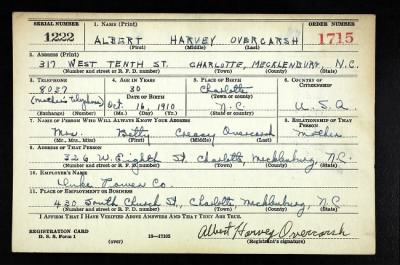 SERIAL NUMBER 1. NAME (Print) ORDER NUMBER
1222 ALBERT HARVEY OVERCARSH 1715
(First) (Middle) (Last)
2. ADDRESS (Print)
317 WEST TENTH ST. CHARLOTTE, MECKLENBURG, N.C.
(Number and street or R. F. D. number) (Town) (County) (State)
3. TELEPHONE 4. AGE IN YEARS 5. PLACE OF BIRTH 6. COUNTRY OF CITIZENSHIP
8037 30 Charlotte
(Mother's Telephone) DATE OF BIRTH (Town or county)
Oct. 16, 1910 N.C. U.S.A.
(Exchange) (Number) (Mo.) (Day) (Yr.) (State or country)
7. NAME OF PERSON WHO WILL ALWAYS KNOW YOUR ADDRESS 8. RELATIONSHIP OF THAT PERSON
Mrs. Betty Creasy Overcarsh Mother
(Mr., Mrs., Miss) (First) (Middle) (Last)
9. ADDRESS OF THAT PERSON
326 W. Eighth St. Charlotte, Mecklenburg, N.C.
(Number and street or R. F. D. number) (Town) (County) (State)
10. EMPLOYER'S NAME
Duke Power Co.
11. PLACE OF EMPLOYMENT OR BUSINESS
430 South Church St., Charlotte, Mecklenburg, N.C.
(Number and street or R. F. D. number) (Town) (County) (State)
I AFFIRM THAT I HAVE VERIFIED ABOVE ANSWERS AND THAT THEY ARE TRUE.
REGISTRATION CARD Albert Harvey Overcarsh
D. S. S. Form 1 (over) 16—17105 (Registrant's signature)